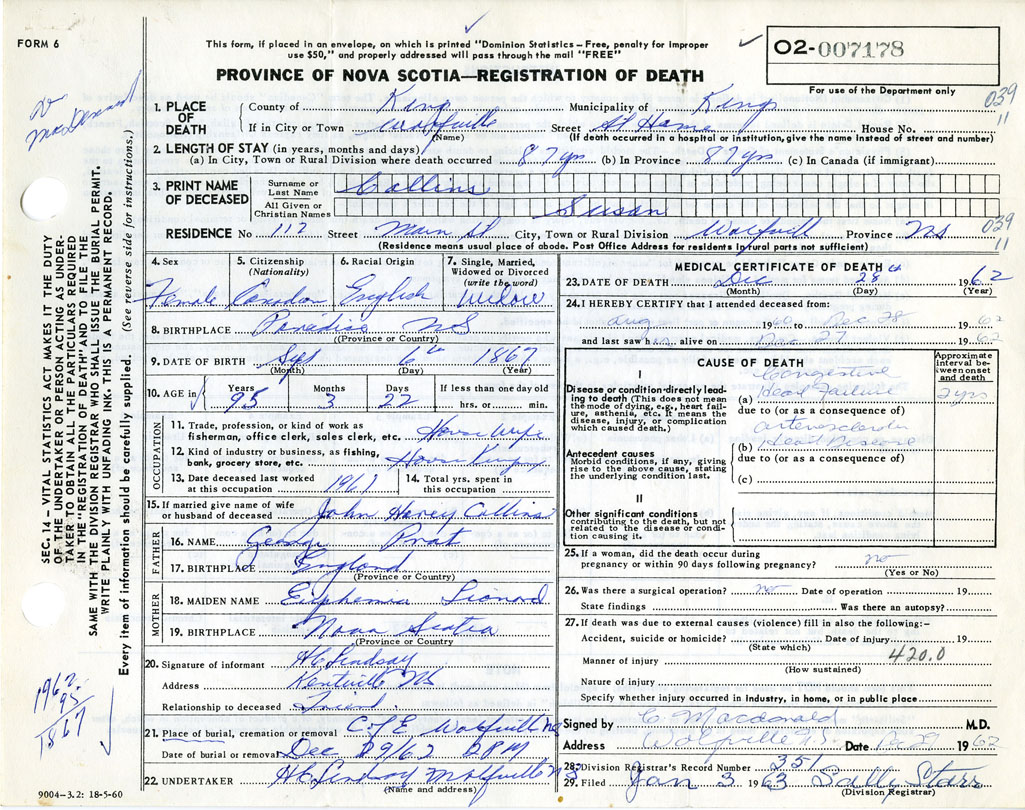 FORM 6
This form, if placed in an envelope, on which is printed "Dominion Statistics – Free, penalty for improper
use $50," and properly addressed will pass through the mail "FREE"
O2-007178
For use of the Department only
PROVINCE OF NOVA SCOTIA—REGISTRATION OF DEATH
Dr MacDonald
039
11
1. PLACE OF DEATH
County of Kings Municipality of Kings
If in City or Town Wolfville (Name) Street At Home House No.
(If death occurred in a hospital or institution, give the name instead of street and number)
2. LENGTH OF STAY (in years, months and days)
(a) In City, Town or Rural Division where death occurred 87 yrs (b) In Province 87 yrs (c) In Canada (if immigrant)
3. PRINT NAME OF DECEASED
Surname or Last Name Collins
All Given or Christian Names Susan
RESIDENCE No 112 Street Main St City, Town or Rural Division Wolfvill Province NS
039
11
(Residence means usual place of abode. Post Office Address for residents in rural parts not sufficient)
4. Sex Female
5. Citizenship (Nationality) Canadian
6. Racial Origin English
7. Single, Married, Widowed or Divorced (write the word) Widow
8. BIRTHPLACE Paradise NS
(Province or Country)
9. DATE OF BIRTH Sept 6th 1867
(Month) (Day) (Year)
10. AGE in Years 95 Months 3 Days 22 If less than one day old hrs. or min.
OCCUPATION
11. Trade, profession, or kind of work as fisherman, office clerk, sales clerk, etc. House Wife
12. Kind of industry or business, as fishing, bank, grocery store, etc. House Keeping
13. Date deceased last worked at this occupation 1961
14. Total yrs. spent in this occupation
15. If married give name of wife or husband of deceased John Harvey Collins
FATHER
16. NAME George Prat
17. BIRTHPLACE England
(Province or Country)
MOTHER
18. MAIDEN NAME Euphemia Lionard
19. BIRTHPLACE Nova Scotia
(Province or Country
20. Signature of informant HC Lindsay
Address Kentville NS
Relationship to deceased Friend
21. Place of burial, cremation or removal C of E Wolfvill NS
Date of burial or removal Dec 29/62 2 PM
22. UNDERTAKER HC Lindsay Wolfville NS
(Name and address)
9004–3.2: 18-5-60
MEDICAL CERTIFICATE OF DEATH
23. DATE OF DEATH Dec 28th 1962
(Month) (Day) (Year)
24. I HEREBY CERTIFY that I attended deceased from:
Aug 1960 to Dec 28 1962
and last saw her alive on Dec 27 1962
CAUSE OF DEATH
Approximate interval between onset and death
I
Disease or condition directly leading to death (This does not mean the mode of dying, e.g., heart failure, asthenia, etc. It means the disease, injury, or complication which caused death.)
(a) Congestive Heart Failure 2 yrs
due to (or as a consequence of)
Antecedent causes
Morbid conditions, if any, giving rise to the above cause, stating the underlying condition last.
(b) arteriosclerotic Heart Disease
due to (or as a consequence of)
(c)
II
Other significant conditions
contributing to the death, but not related to the disease or condition causing it.
25. If a woman, did the death occur during pregnancy or within 90 days following pregnancy? no
(Yes or No)
26. Was there a surgical operation? no Date of operation 19
State findings Was there an autopsy?
27. If death was due to external causes (violence) fill in also the following:–
Accident, suicide or homicide? Date of injury 19
(State which)
420.0
Manner of injury
(How sustained)
Nature of injury
Specify whether injury occurred in Industry, in home, or in public place
Signed by C. Macdonald M.D.
Address Wolfville N.S. Date Dec 29 1962
28. Division Registrar's Record Number 351
29. Filed Jan 3 1963 Sally Starr
(Division Registrar)
SEC. 14 – VITAL STATISTICS ACT MAKES IT THE DUTY
OF THE UNDERTAKER OR PERSON ACTING AS UNDER-
TAKER TO OBTAIN ALL THE PARTICULARS REQUIRED
IN THE "REGISTRATION OF DEATH" AND TO FILE THE
SAME WITH THE DIVISION REGISTRAR WHO SHALL ISSUE THE BURIAL PERMIT.
WRITE PLAINLY WITH UNFADING INK. THIS IS A PERMANENT RECORD.
Every item of information should be carefully supplied. (See reverse side for instructions.)
1962
95
1867